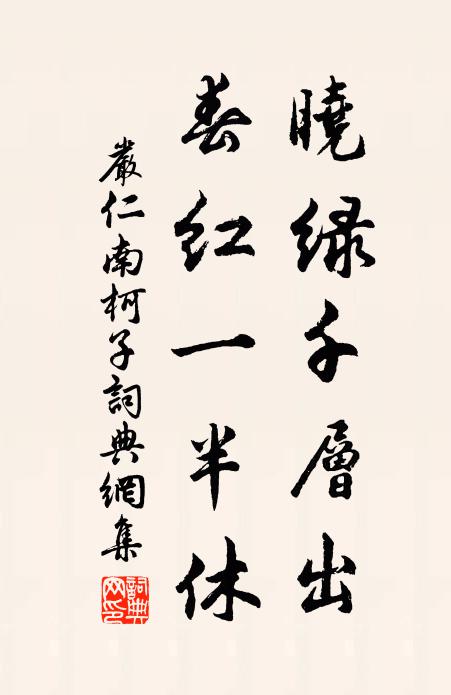 曉緑千層出
春紅一半休
嚴仁南柯子詞典網集
詞典
网印